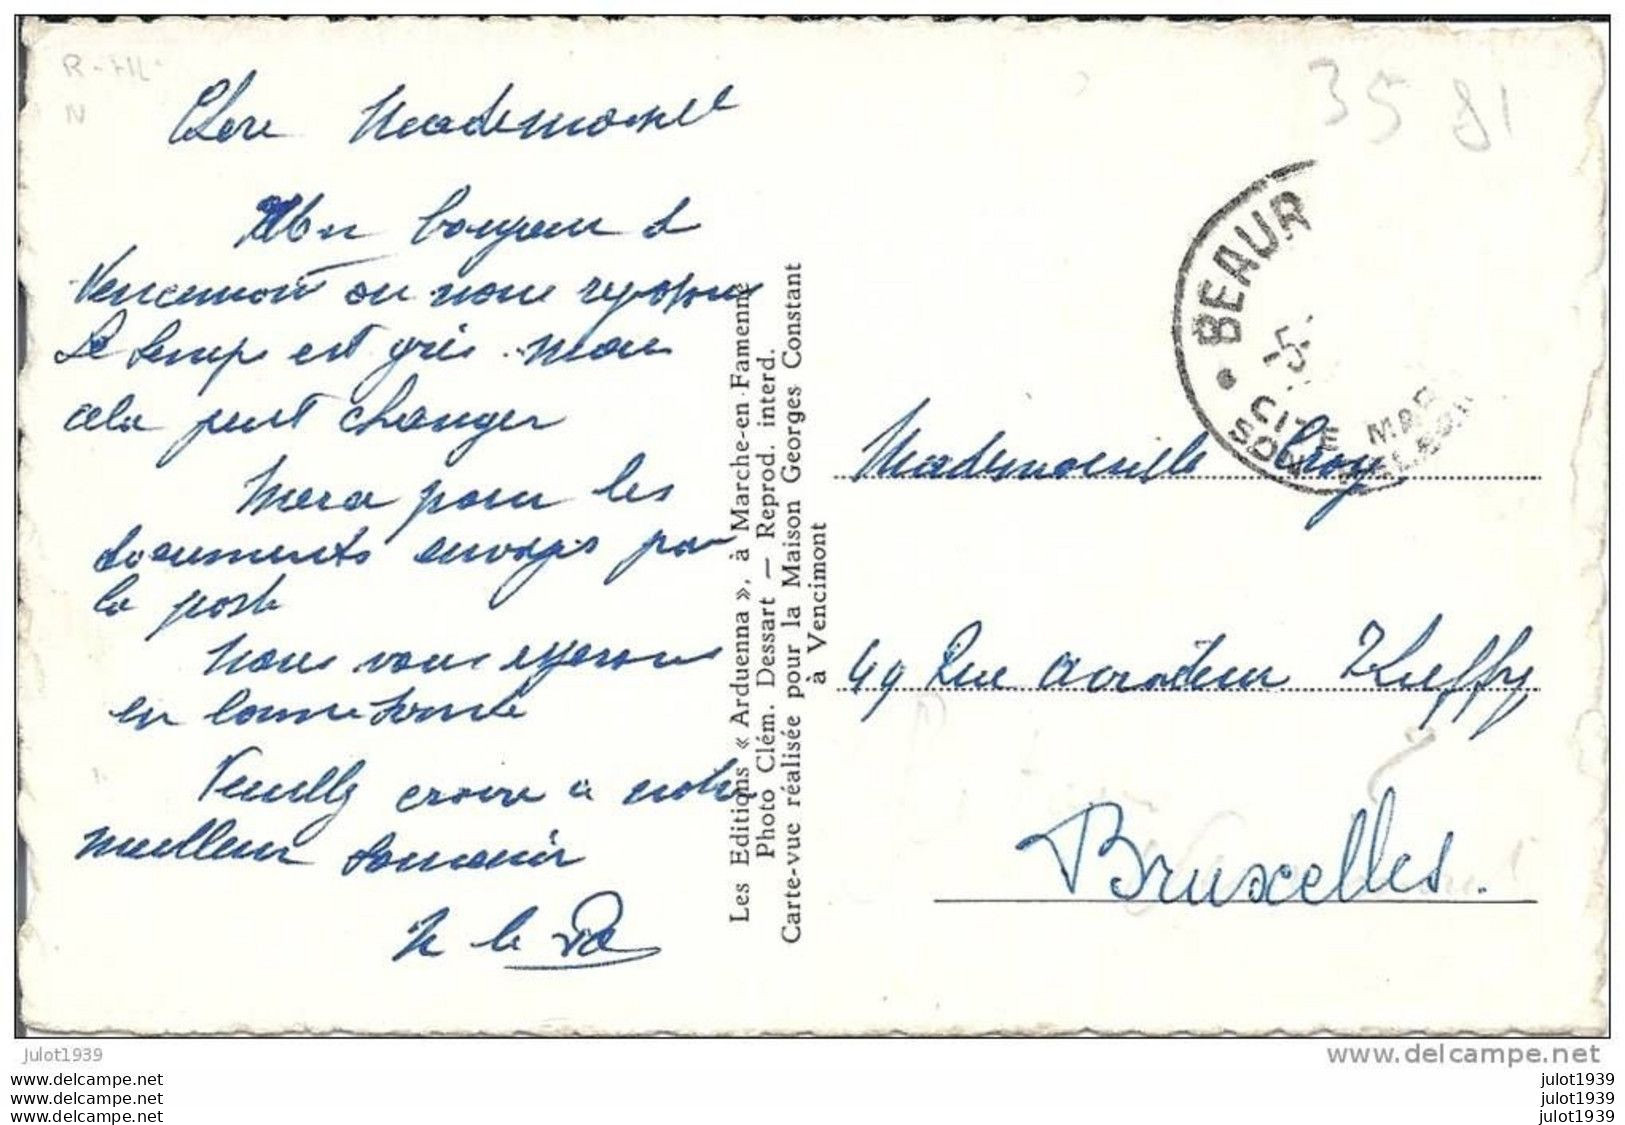 R-HL
N
35 81
Chere Mademoiselle
Mon bonjour d
Vencimont ou nous reposons
Le temps est gris mais
cela peut changer
Merci pour les
documents envoyés par
la poste
Nous vous esperons
en bonne santé
Veuillez croire a notre
meilleur souvenir
Les Editions « Arduenna », à Marche-en-Famenne
Photo Clém. Dessart — Reprod. interd.
Carte-vue réalisée pour la Maison Georges Constant
à Vencimont
BEAUR
-5-
CITE MAR
SON
Mademoiselle
49 Rue aviateur Thieffry
Bruxelles.
julot1939
www.delcampe.net
www.delcampe.net
www.delcampe.net
www.delcampe.net
julot1939
julot1939
julot1939